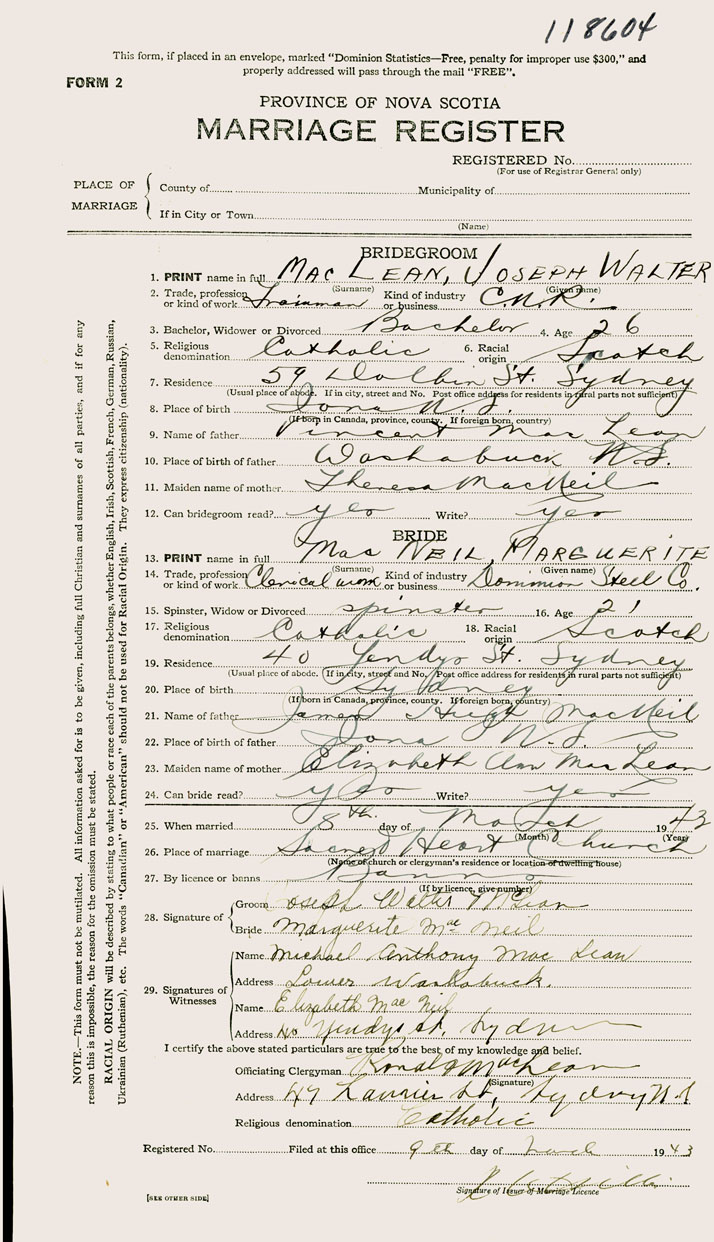 118604
This form, if placed in an envelope, marked "Dominion Statistics—Free, penalty for improper use $300," and
properly addressed will pass through the mail "FREE".
FORM 2
PROVINCE OF NOVA SCOTIA
MARRIAGE REGISTER
REGISTERED No.
(For use of Registrar General only)
PLACE OF MARRIAGE
County of Municipality of
If in City or Town
(Name)
BRIDEGROOM
1. PRINT name in full MacLEAN, JOSEPH WALTER
(Surname) (Given name)
2. Trade, profession or kind of work Trainman Kind of industry or business C.N.R.
3. Bachelor, Widower or Divorced Bachelor 4. Age 26
5. Religious denomination Catholic 6. Racial origin Scotch
7. Residence 59 Dolbin St. Sydney
(Usual place of abode. If in city, street and No. Post office address for residents in rural parts not sufficient)
8. Place of birth Iona N.S.
(If born in Canada, province, county. If foreign born, country)
9. Name of father Vincent MacLean
10. Place of birth of father Washabuck N.S.
11. Maiden name of mother Theresa MacNeil
12. Can bridegroom read? yes Write? yes
BRIDE
13. PRINT name in full Mac NEIL, MARGUERITE
(Surname) (Given name)
14. Trade, profession or kind of work Clerical work Kind of industry or business Dominion Steel Co.
15. Spinster, Widow or Divorced spinster 16. Age 21
17. Religious denomination Catholic 18. Racial origin Scotch
19. Residence 40 St. Sydney
(Usual place of abode. If in city, street and No. Post office address for residents in rural parts not sufficient)
20. Place of birth Sydney
(If born in Canada, province, county. If foreign born, country)
21. Name of father James Hugh MacNeil
22. Place of birth of father Iona N.S.
23. Maiden name of mother Elizabeth Ann MacLean
24. Can bride read? yes Write? yes
25. When married 8th day of March 1943
(Month) (Year)
26. Place of marriage Sacred Heart Church
(Name of church or clergyman's residence or location of dwelling house)
27. By licence or banns Banns
(If by licence, give number)
28. Signature of
Groom Joseph Walter McLean
Bride Marguerite MacNeil
29. Signatures of Witnesses
Name Michael Anthony MacLean
Address Lower Washabuck.
Name Elizabeth MacNeil
Address 40 St,
I certify the above stated particulars are true to the best of my knowledge and belief.
Officiating Clergyman Ronald MacLean
(Signature)
Address 47 St, Sydney N.S
Religious denomination Catholic
Registered No. Filed at this office 9th day of March 1943
Signature of Issuer of Marriage Licence
[SEE OTHER SIDE]
NOTE.—This form must not be mutilated. All information asked for is to be given, including full Christian and surnames of all parties, and if for any
reason this is impossible, the reason for the omission must be stated.
RACIAL ORIGIN will be described by stating to what people or race each of the parents belongs, whether English, Irish, Scottish, French, German, Russian,
Ukrainian (Ruthenian), etc. The words "Canadian" or "American" should not be used for Racial Origin. They express citizenship (nationality).